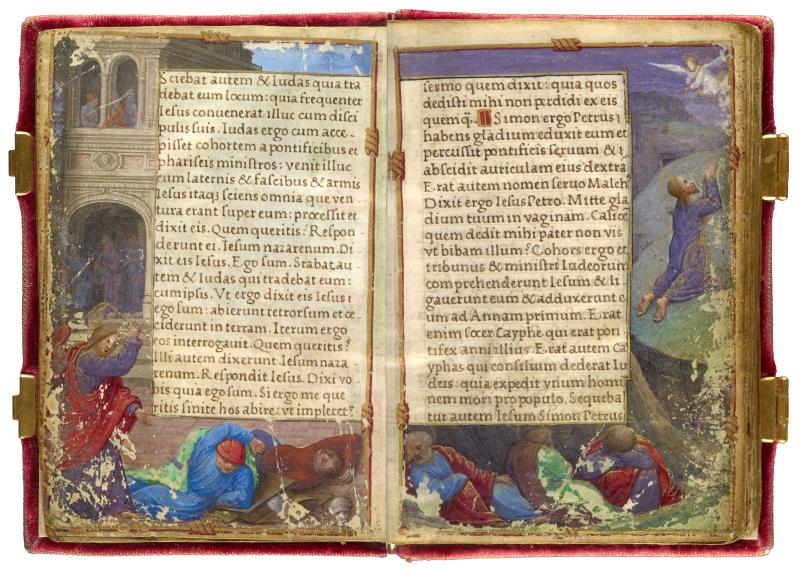 Sciebat autem & Iudas quia tra
debat eum locum: quia frequenter
Iesus conuenerat illuc cum disci
pulis suis. Iudas ergo cum acce-
pisset cohortem a pontificibus et
phariseis ministros: venit illuc
cum laternis & fascibus & armis
Iesus itaq; sciens omnia que ven
tura erant super eum: processit et
dixit eis. Quem queritis? Respon
derunt ei. Iesum nazarenum. Di
xit eis Iesus. Ego sum. Stabat au
tem & Iudas qui tradebat eum:
cum ipsis. Vt ergo dixit eis Iesus
ego sum: abierunt retrorsum et ce
ciderunt in terram. Iterum ergo
eos interrogauit. Quem queritis?
Illi autem dixerunt Iesum naza
renum. Respondit Iesus. Dixi vo
bis quia ego sum. Si ergo me que
ritis sinite hos abire: vt impleret?
sermo quem dixit: quia quos
dedisti mihi non perdidi ex eis
quem q̃. Simon ergo Petrus
habens gladium eduxit eum et
percussit pontificis seruum &
abscidit auriculam eius dextra
Erat autem nomen seruo Malch
Dixit ergo Iesus Petro. Mitte gla
dium tuum in vaginam. Calice
quem dedit mihi pater non vis
vt bibam illum? Cohors ergo et
tribunus & ministri Iudeorum
comprehenderunt Iesum & li
gauerunt eum & adduxerunt e
um ad Annam primum. Erat
enim socer Cayphe qui erat pon
tifex anni illius. Erat autem Ca
yphas qui consilium dederat Iu
deis: quia expedit vnum hom
nem mori pro populo. Sequeba
tur autem Iesum Simon Petrus